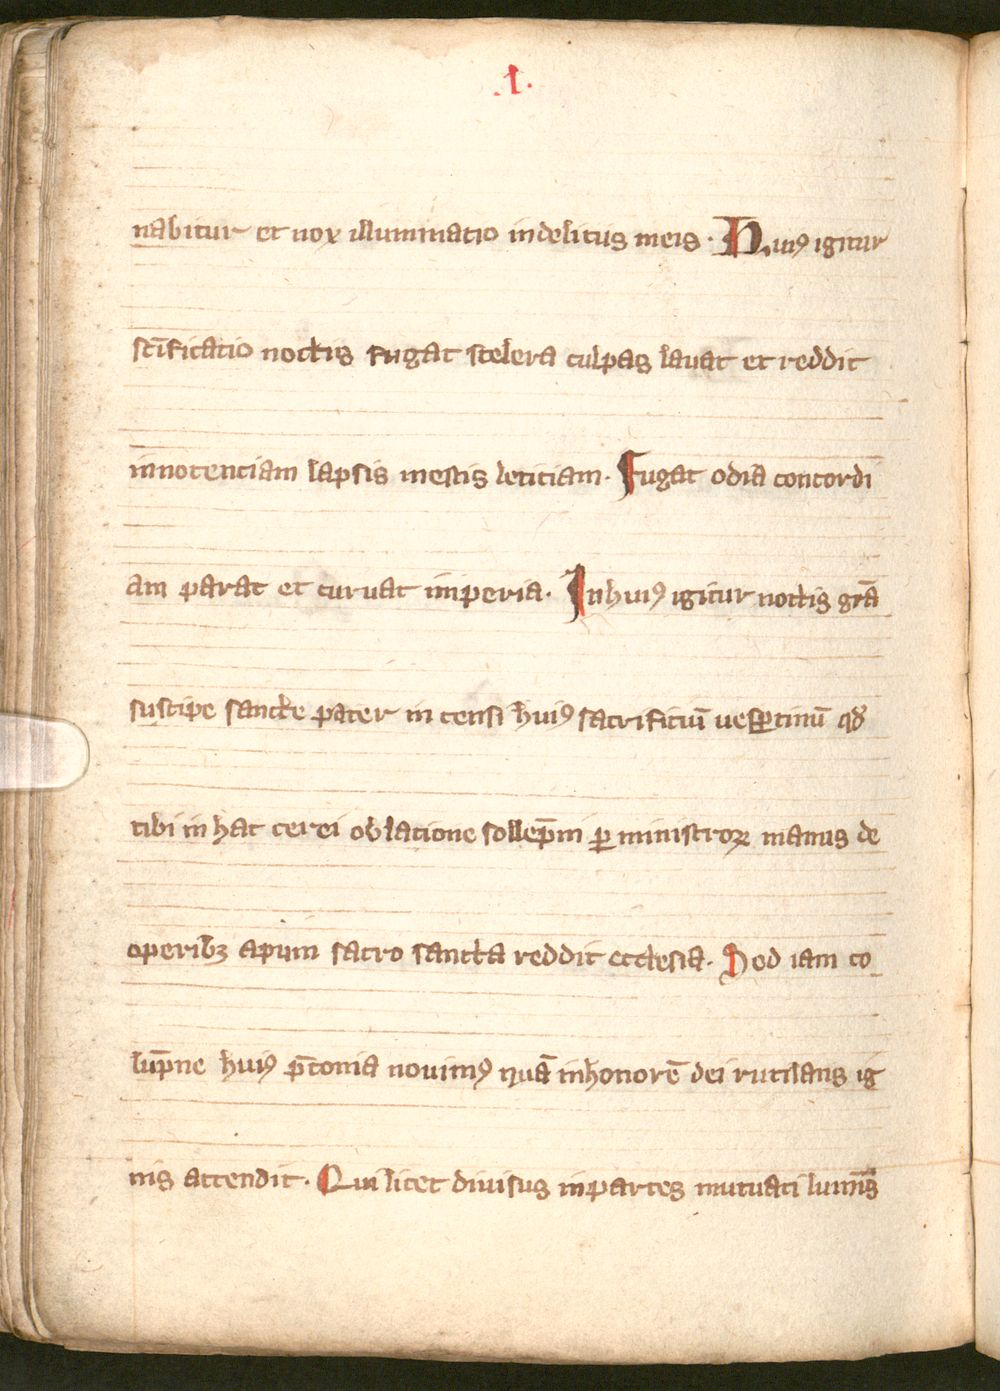 .1.
nabitur et nox illuminatio in delitiis meis. Huiꝰ igitur
sc̄ificatio noctis fugat scelera culpas lauat et reddit
innocenciam lapsis mestis leticiam. Fugat odia concordi
am parat et curuat imperia. In huiꝰ igitur noctis gr̄a
suscipe sancte pater incensi huiꝰ sacrificiū uesꝑtinū qd̄
tibi in hac cerei oblatione sollep̄ni ꝑ ministroꝝ manus de
operibꝫ apum sacro sancta reddit ecclesia. Sed iam co
lūpne huiꝰ p̄conia nouimꝰ quā in honorē dei rutilans ig
nis accendit. Qui licet diuisus in partes mutuati lumīs